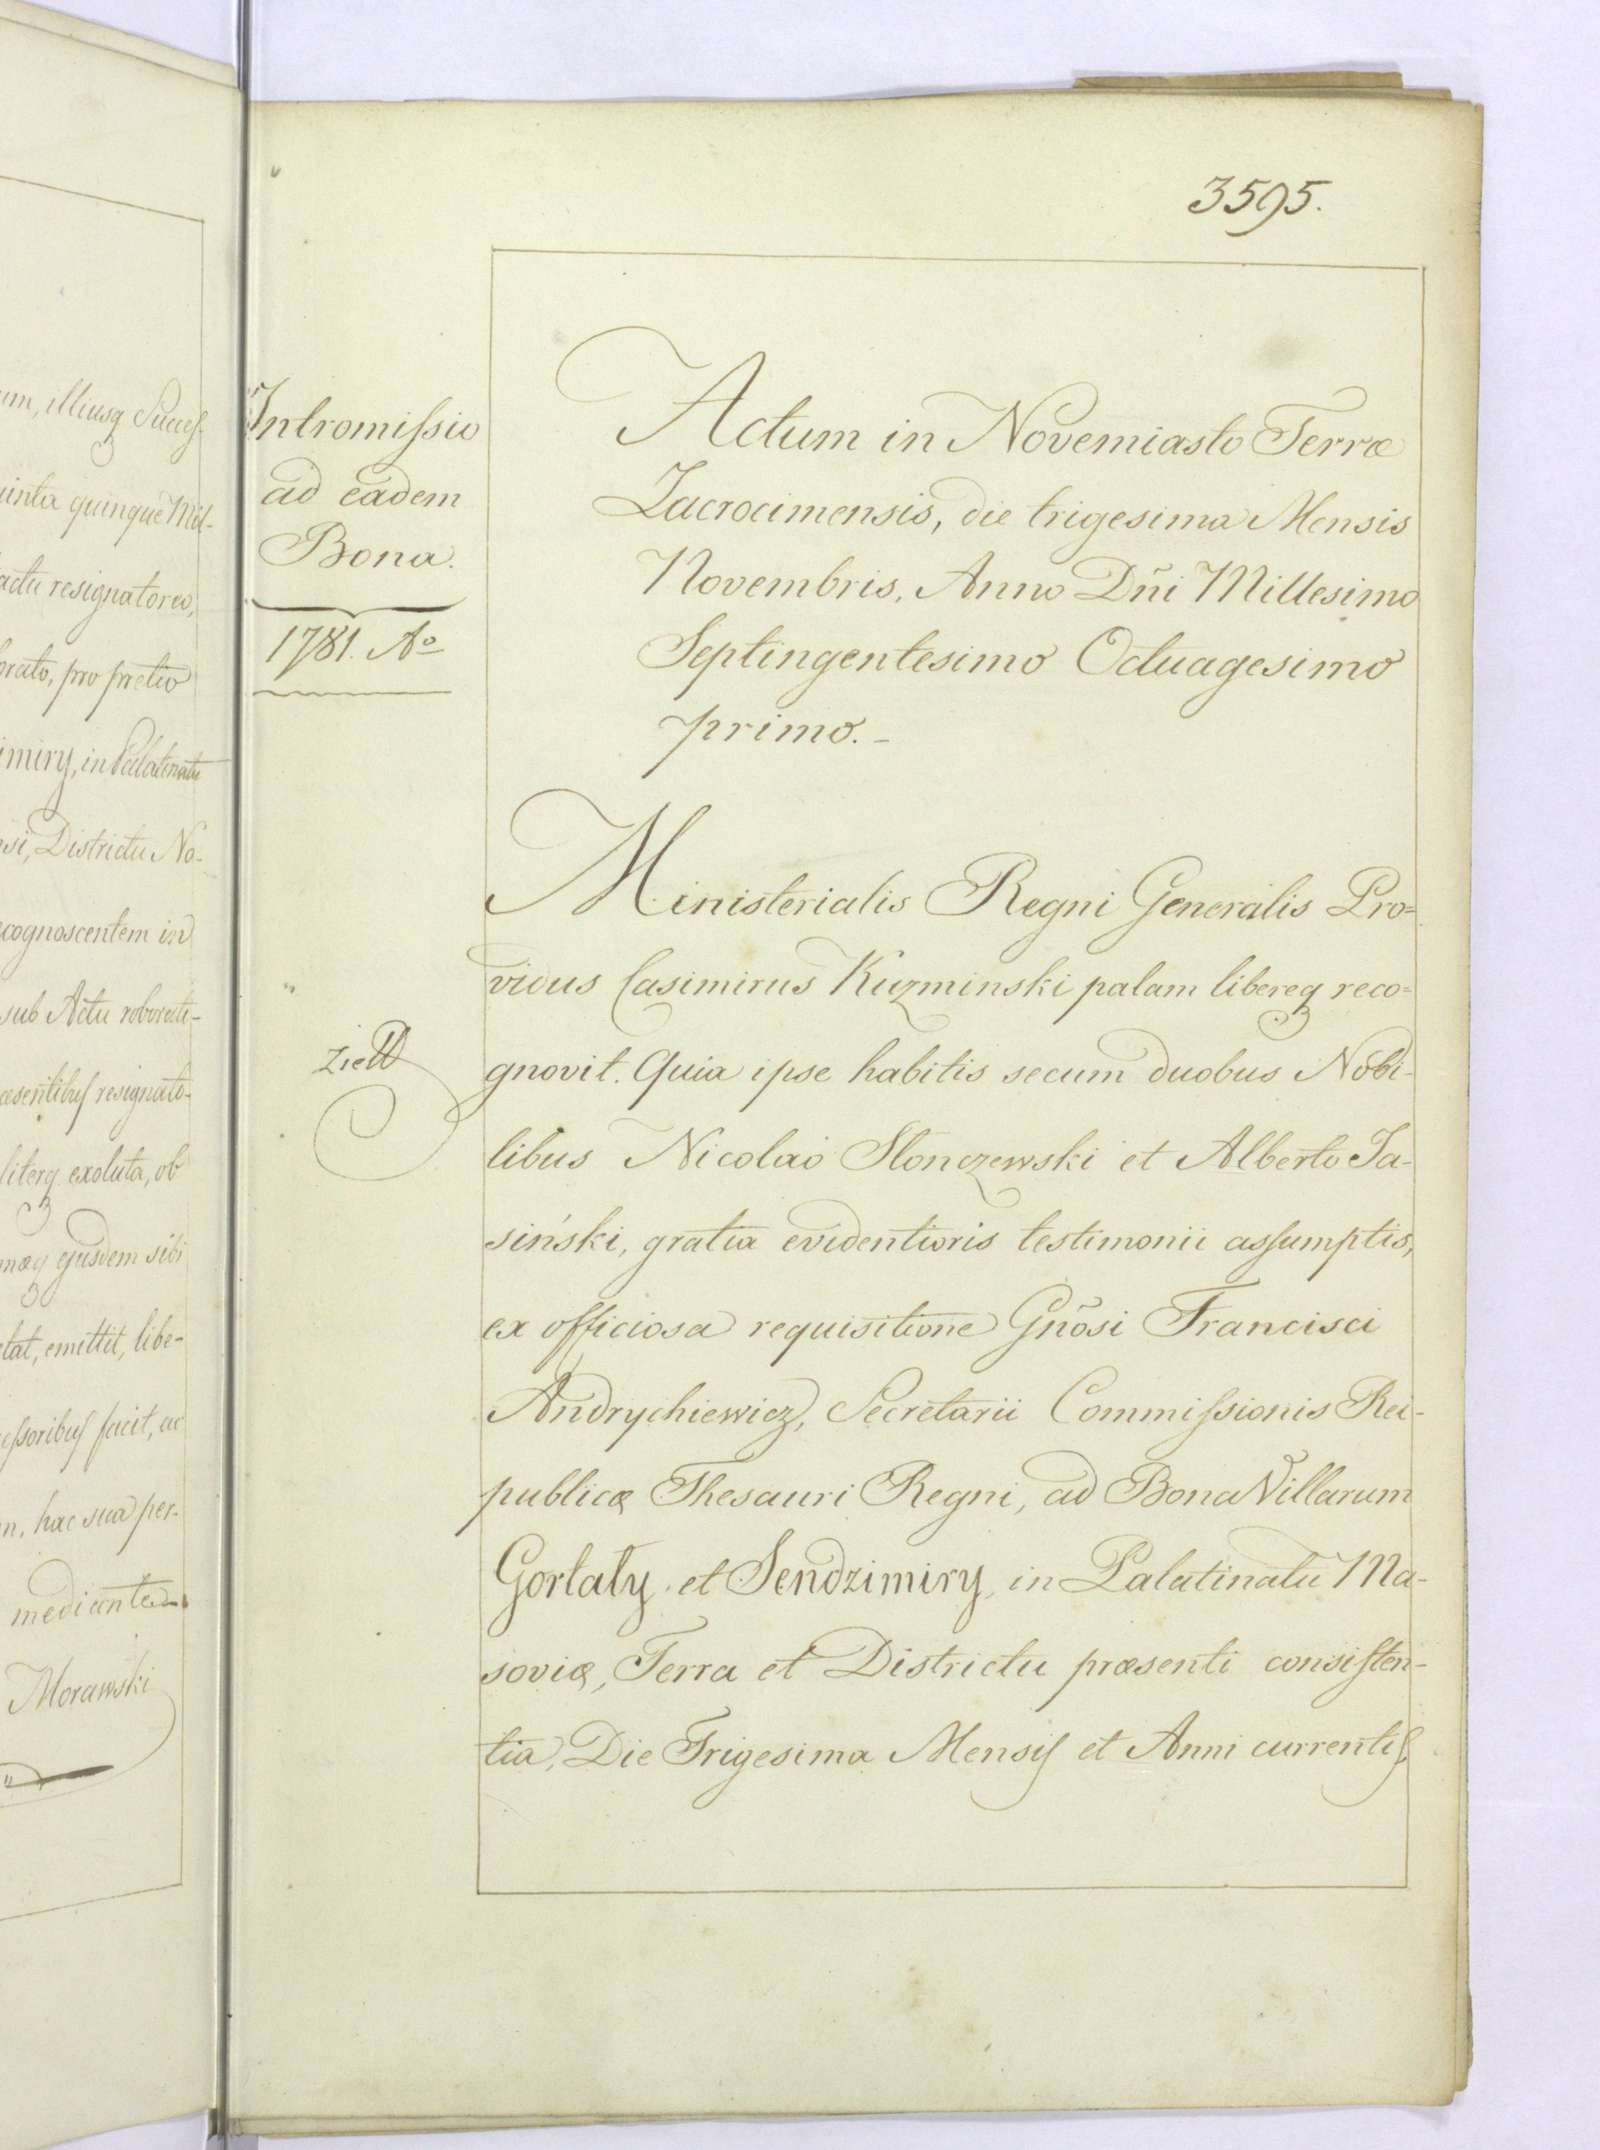 3595.
Intromissio
ad eadem
Bona.
1781. Aº
Actum in Novemiasto Terræ
Zacrocimensis, die trigesima Mensis
Novembris, Anno Dñi Millesimo
Septingentesimo Octuagesimo
primo.-
Ministerialis Regni Generalis Pro=
vidus Casimirus Kuzminski palam libereq reco=
gnovit. Quia ipse habitis secum duobus Nobi-
libus Nicolao Slonczewski et Alberto Ja-
siński, gratia evidentioris testimonii assumptis,
ex officiosa requisitione Gñosi Francisci
Andrychiewicz, Secretarii Commissionis Rei-
publicæ Thesauri Regni, ad Bona Villarum
Gorłaty et Sendzimiry, in Palatinatu Ma-
soviæ, Terra et Districtu præsenti consisten-
tia, Die Trigesima Mensis et Anni currentis,
um, illiusq Succes-
uinta quinque Mil-
actu resignatoreo,
brato, pro pretio
imiry, in Palatinatu
nsi, Districtu No-
ecognoscentem in
sub Actu roborati-
æsentibus resignato-
literq exoluta, ob
ejusdem sibi
etat, emittit, libe-
essoribus facit, ac
n, hac sua per-
mediante
Morawski